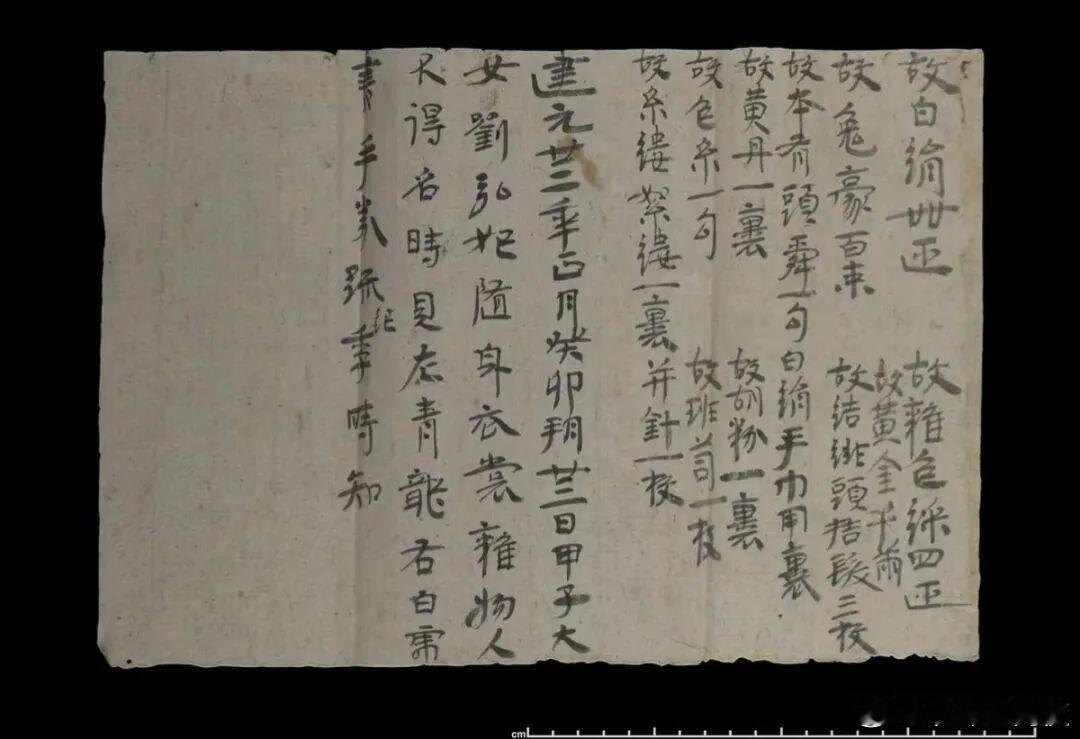 故白絹卅疋 故雜色綵四疋
故黃金千兩
故兔豪百束 故結緋頭括髮三枚
故本有頭舜一句白絹手巾用裹
故黃丹一裹 故胡粉一裹
故色糸一句 故班笥一枚
故糸縷絮縷一裹并針一枚
建元廿二年正月癸卯朔廿二日甲子大
女劉弘妃隨身衣裳雜物人
不得名時見左青龍右白虎
書手券疏紀季時知